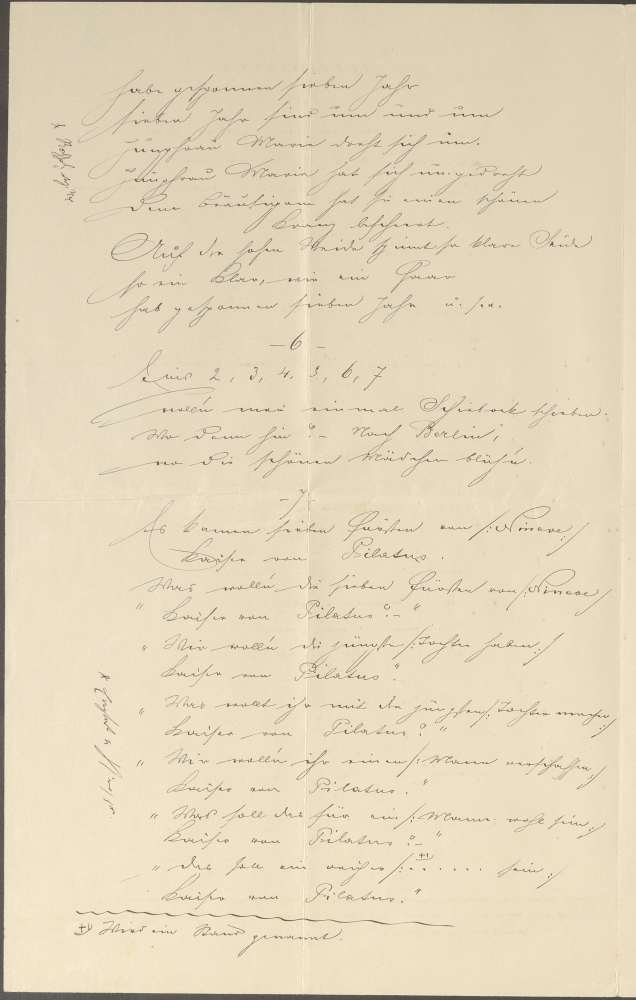 habe gesponnen sieben Jahr
sieben Jahr sind um und um
Jungfrau Marie dreht sich um.
Jungfrau Marie hat sich umgedreht
Dem Bräutigam hat sie einen schönen
Kranz bescheert.
Auf der hohen Weide spinnt so klare Seide
so ein klar, wie ein Haar
hab gesponnen sieben Jahr u. s. w.
– 6 –
Eins 2, 3, 4, 5, 6, 7
woll'n mer einmal Schiebock schieben.
Wo denn hin? – Nach Berlin,
wo die schönen Mädchen blüh'n.
– 7 –
Es kamen sieben Fürsten von /: Ninive :/
Kaiser von Pilatus.
Was woll'n die sieben Fürsten von /: Ninive :/
" Kaiser von Pilatus? – "
" Wir woll'n die jüngste /: Tochter haben :/
Kaiser von Pilatus."
" Was wollt ihr mit der jüngsten /: Tochter machen :/
Kaiser von Pilatus? "
" Wir woll'n ihr einen /: Mann verschaffen :/
Kaiser von Pilatus."
" Was soll das für ein /: Mann wohl sein :/
Kaiser von Pilatus? – "
" Das soll ein /: +) . . . . . . sein :/
Kaiser von Pilatus."
+) Wird ein Stand genannt.